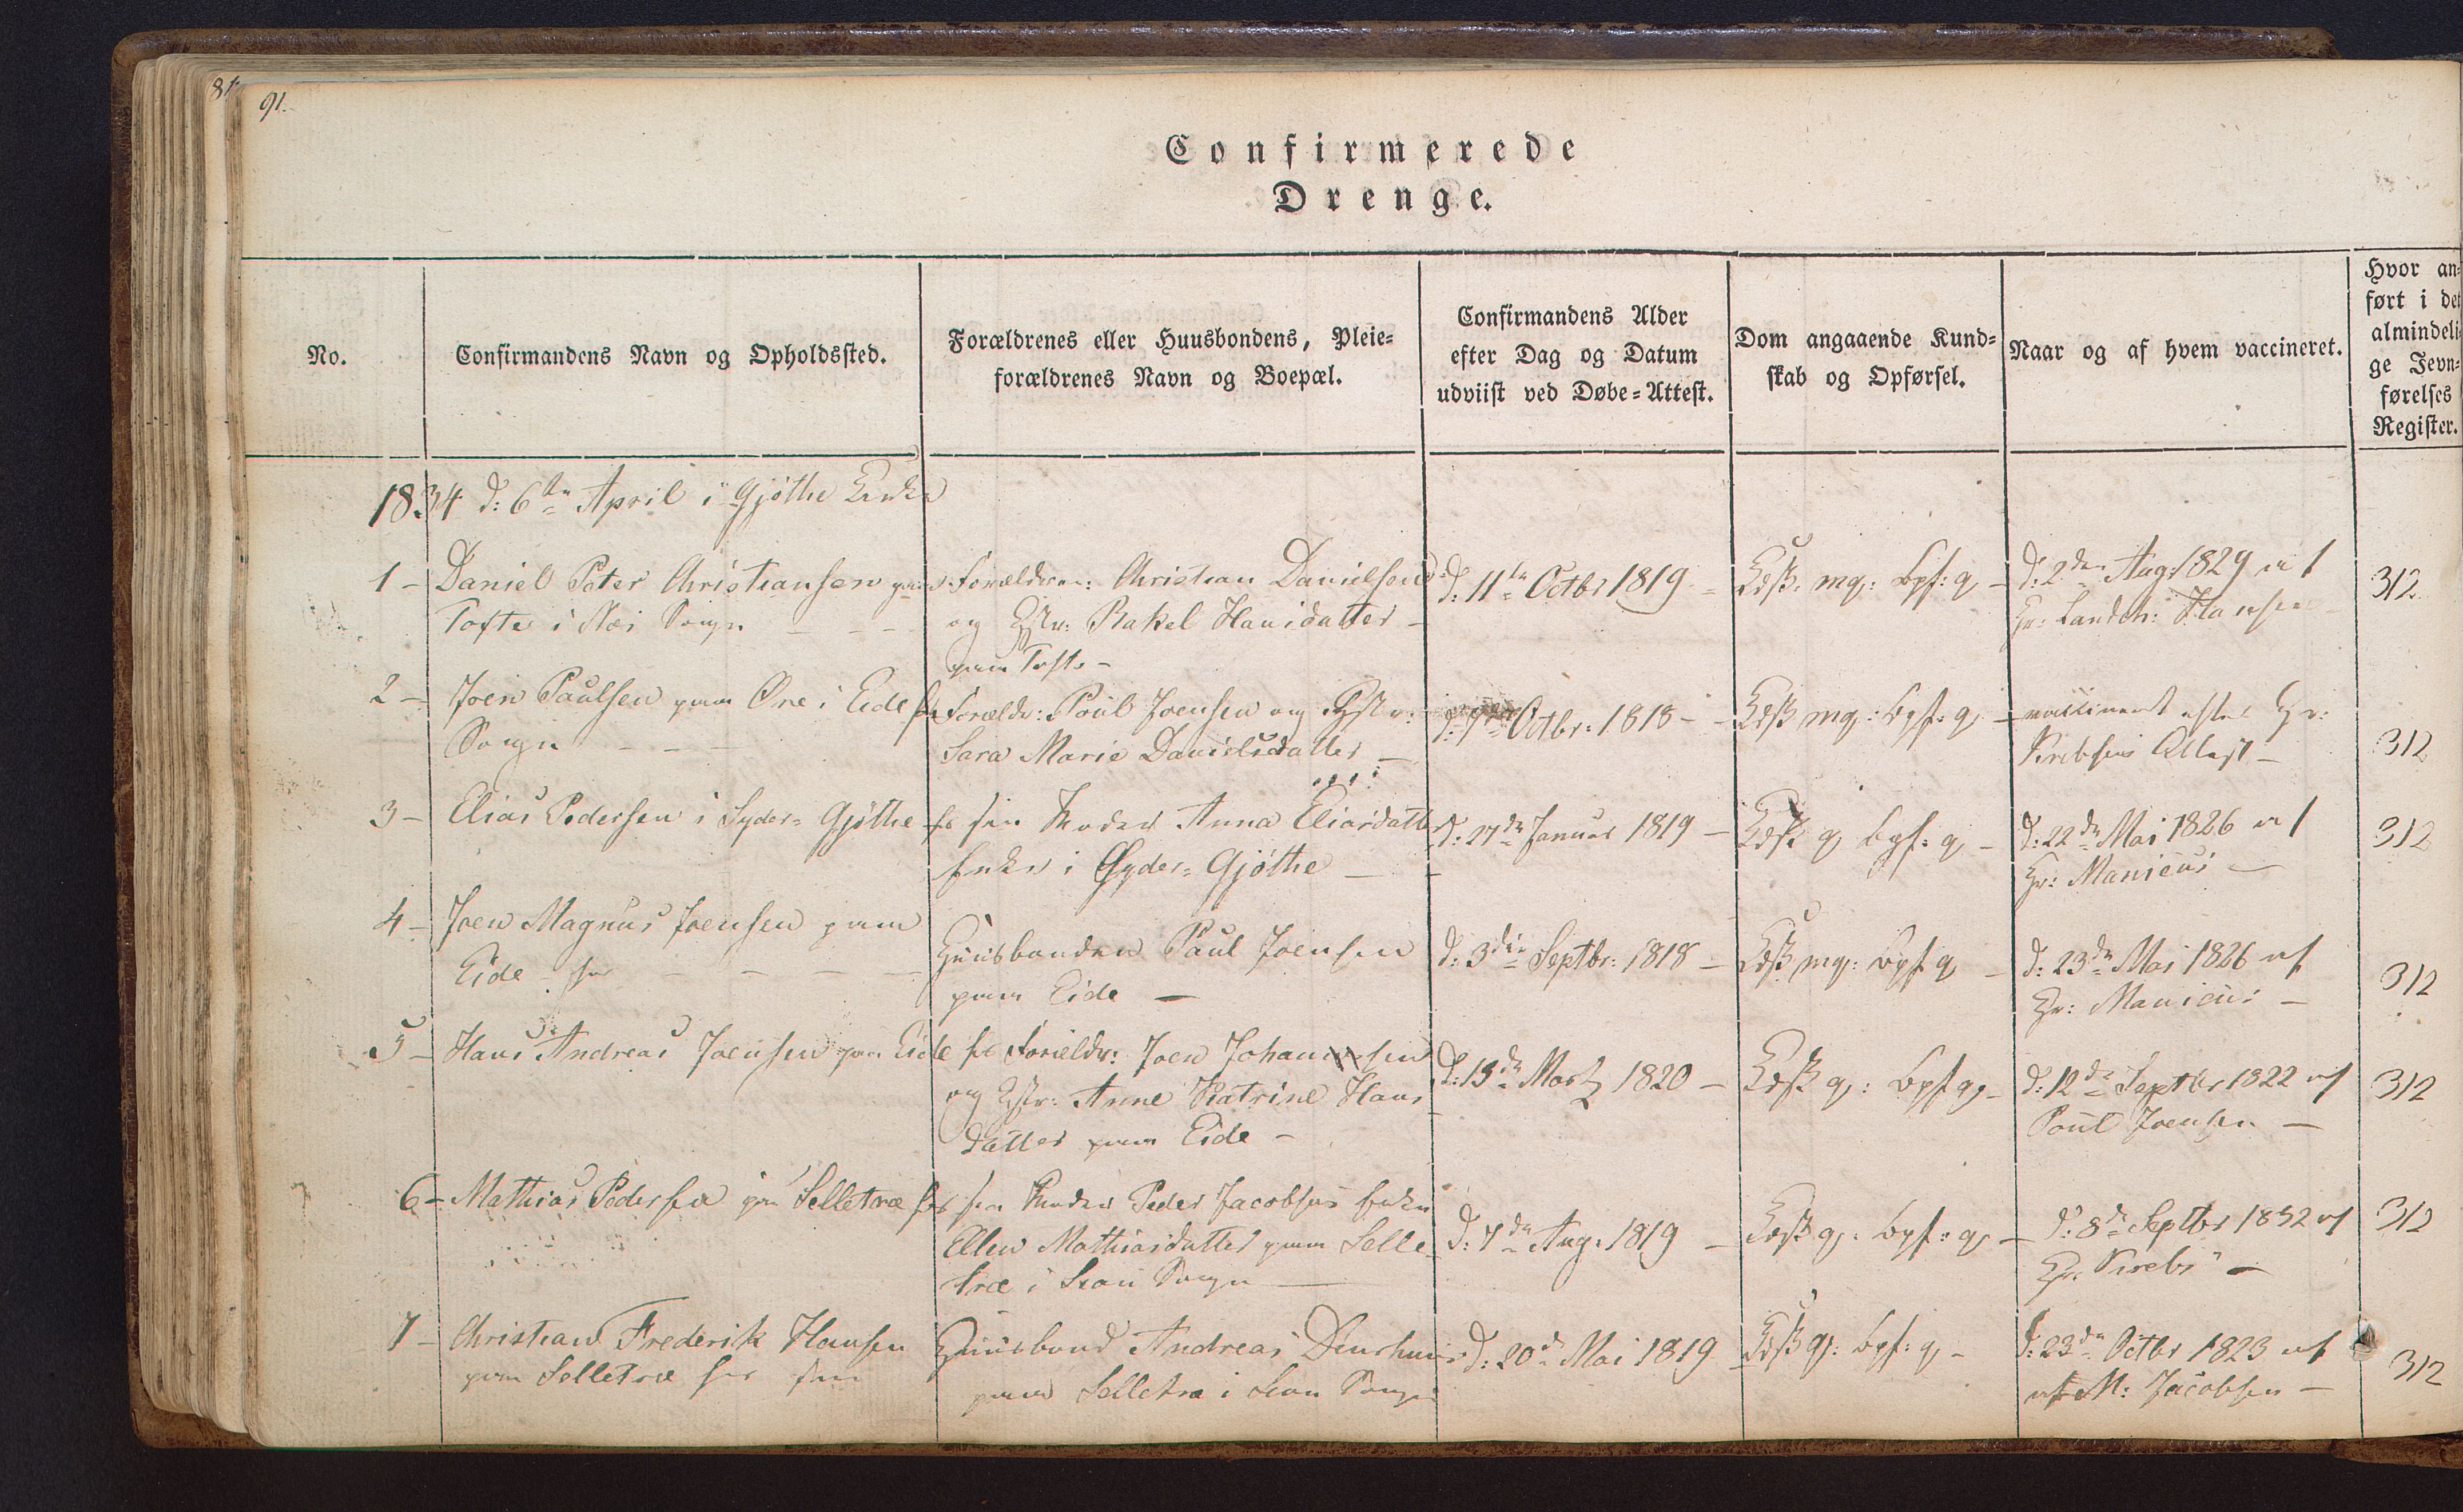 81
91.
Confirmerede
Drenge.
No.
Confirmandens Navn og Opholdssted.
Forældrenes eller Huusbondens, Pleie=
forældrenes Navn og Boepæl.
Confirmandens Alder
efter Dag og Datum
udviist ved Døbe=Attest.
Dom angaaende Kund=
skab og Opførsel.
Naar og af hvem vaccineret.
Hvor an=
ført i det
almindeli=
ge Jevn=
førelses
Register.
1834 d: 6te April i Gjøthe Kirke
1 - Daniel Peter Christiansen paa
Tofte i Næs Sogn - - -
Forældrene: Christian Danielsen
og Hstr: Rakel Hansdatter -
paa Tofte -
d: 11te Octbr 1819 -
Kdsk: mg: Opf: g -
d: 2den Aug: 1829 af
Hr: Landch: Hansen -
312
2 - Joen Paulsen paa Øre i Eide
Sogn - - -
Forældr: Poul Joensen og Hstr:
Sara Marie Danielsdatter -
d: 7de Octbr: 1818 -
Kdsk mg: Opf: g -
vaccineret efter Hr:
Attest -
312
3 - Elias Pedersen i Syder= Gjøthe
for sin Moder Anna Eliasdatter
Enke i Syder= Gjøthe -
d: 27de Januar 1819 -
Kdsk g Opf: g -
d: 22de Mai 1826 af
Hr: Manicus -
312
4 - Joen Magnus Joensen paa
Eide for - - - -
Huusbonden Paul Joensen
paa Eide -
d: 3die Septbr: 1818 -
Kdsk mg: Opf g -
d: 23de Mai 1826 af
Hr: Manicus -
312
5 - Hans Andreas Joensen paa Eide
for Forældr: Joen Johannesen
og Hstr: Anne Katrine Hans
datter paa Eide -
d: 13de Martz 1820 -
Kdsk g: Opf g -
d: 12de Septbr 1822 af
Poul Joensen -
312
6 - Mathias Pedersen paa Selletræ for
sin Moder Peder Jacobsens Enke
Ellen Mathiasdatter paa Selle
træ i Sogn -
d: 7de Aug: 1819 -
Kdsk g: Opf: g -
d: 8de Septbr 1832 af
Hr. -
312
7 - Christian Frederik Hansen
paa Selletræ for sin
Huusbond Andreas
paa Selletræ i Sogn
d: 20de Mai 1819
Kdsk g: Opf: g -
d: 23de Octbr 1823 af
af M: Jacobsen -
312